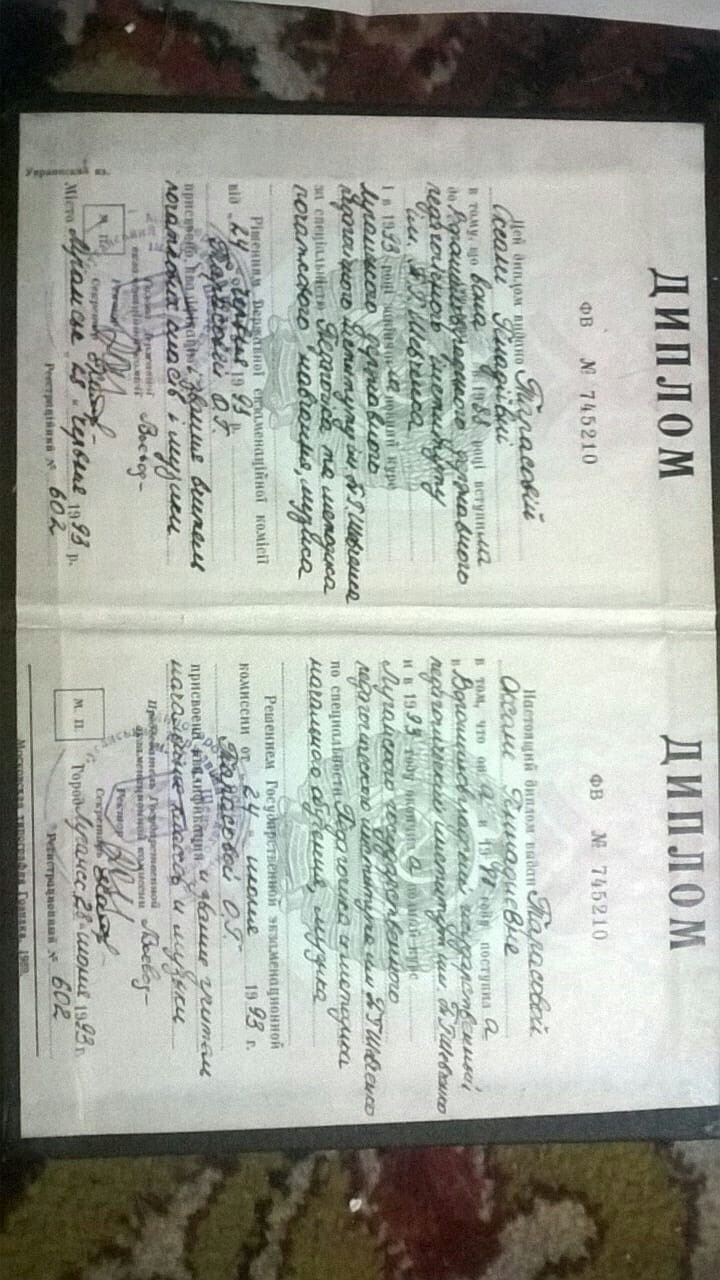 ДИПЛОМ
ФВ № 745210
Цей диплом видано Тарасовій
Оксані Генадіївні
в тому, що вона в 19 році вступила
до Ворошиловградського державного
педагогічного інституту
ім. Т.Г. Шевченка
і в 1993 році закінчила повний курс
Луганського державного
педагогічного інституту ім. Т.Г. Шевченка
за спеціальністю Педагогіка та методика
початкового навчання, музика
Рішенням Державної екзаменаційної комісії
від „24“ червня 1993 р.
Тарасовій О.Г.
присвоєно кваліфікацію і звання вчителя
початкових класів і музики
Голова Державної
екзаменаційної комісії
Ректор
Секретар
М. П.
Місто Луганськ „28“ червня 1993 р.
Реєстраційний № 602
Украинский яз.
ДИПЛОМ
ФВ № 745210
Настоящий диплом выдан Тарасовой
Оксане Генадиевне
в том, что он а в 19 году поступил а
в Ворошиловградский государственный
педагогический институт им. Т.Г. Шевченко
и в 1993 году окончил а полный курс
Луганского государственного
педагогического института им. Т.Г. Шевченко
по специальности Педагогика и методика
начального обучения, музыка
Решением Государственной экзаменационной
комиссии от „24“ июня 1993 г.
Тарасовой О.Г.
присвоена квалификация и звание учителя
начальных классов и музыки
Председатель Государственной
экзаменационной комиссии
Ректор
Секретарь
М. П.
Город Луганск 28 июня 1993 г.
Регистрационный № 602
Московская типография Гознака.